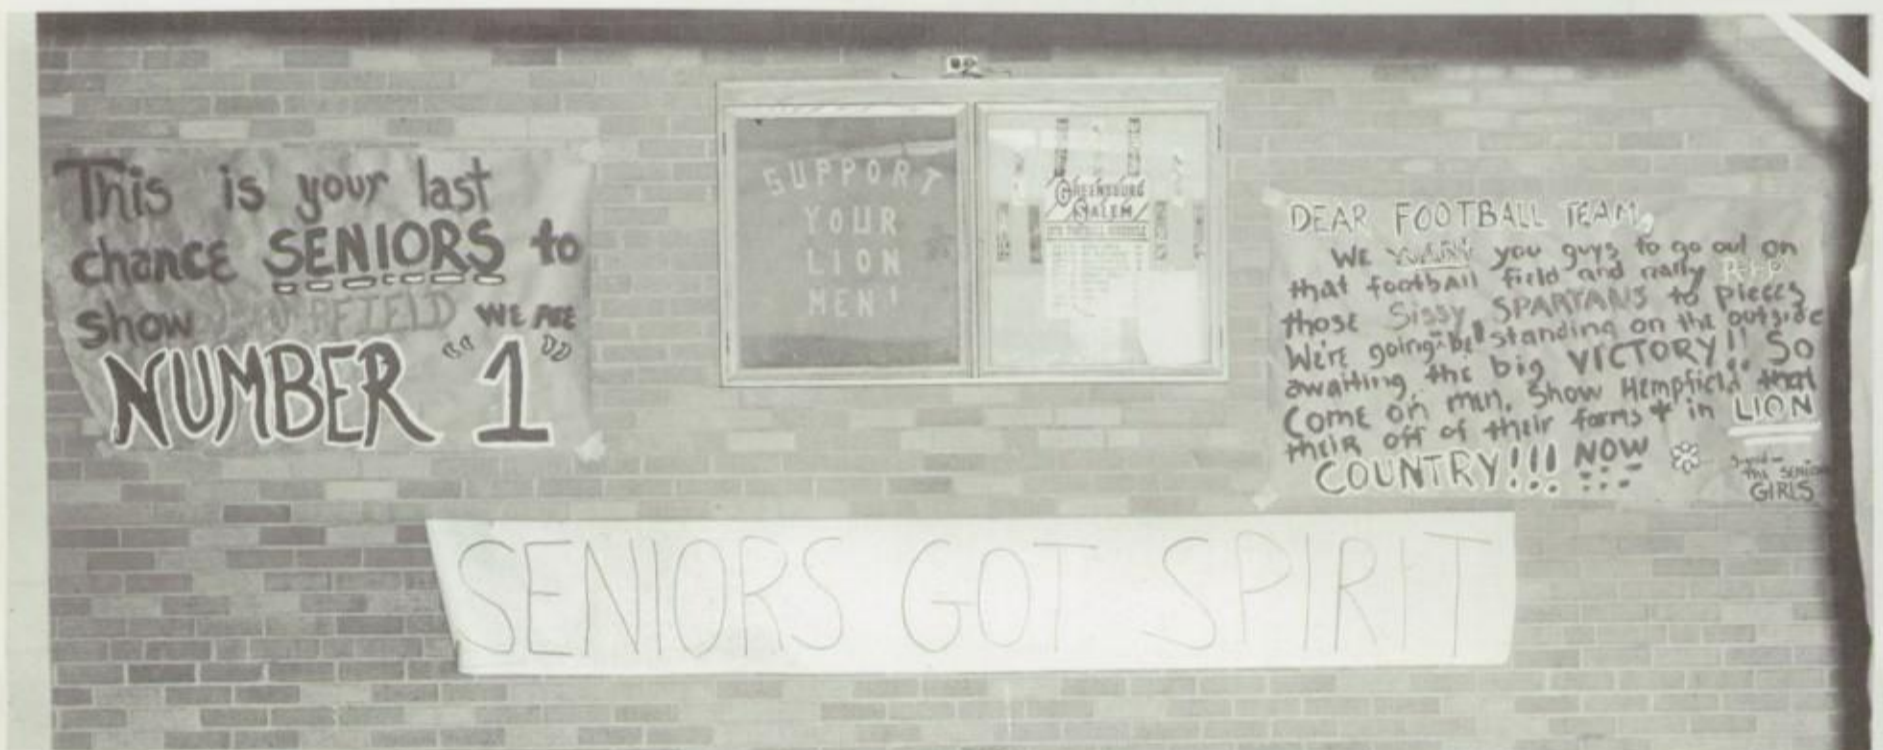 This is your last
chance SENIORS to
show HEMPFIELD WE ARE
NUMBER "1"
SUPPORT
YOUR
LION
MEN!
GREENSBURG
SALEM
DEAR FOOTBALL TEAM,
WE WANT you guys to go out on
that football field and really RIP
those Sissy SPARTANS to pieces
We're going be standing on the outside
awaiting the big VICTORY!! So
Come on men, Show Hempfield that
their off of their farms & in LION
COUNTRY!!! NOW
Signed-
the SENIOR
GIRLS
SENIORS GOT SPIRIT